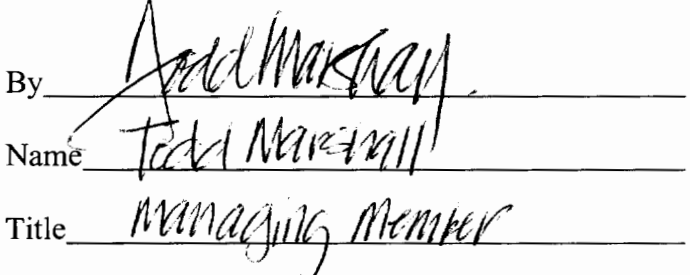 By Todd Marshall
Name Todd Marshall
Title Managing Member